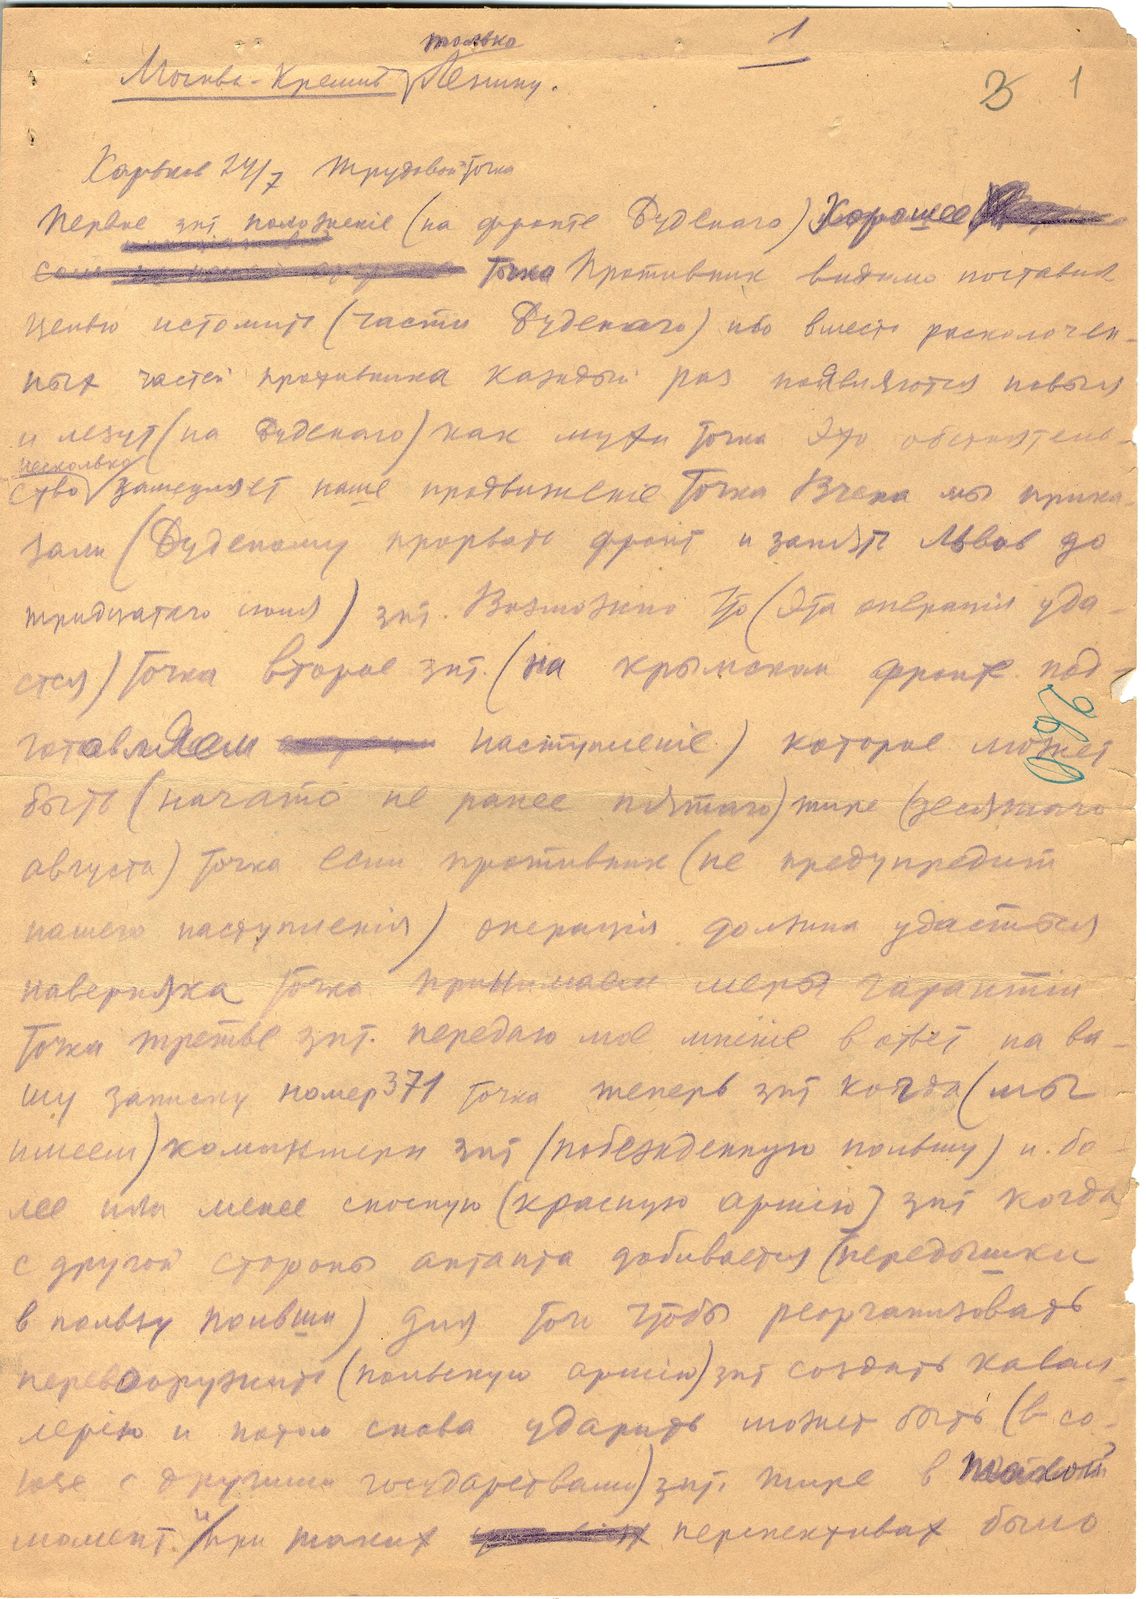 1
только
Москва-Кремль Ленину.
3 1
Харьков 24/7 Трудовой Точка
Первое зпт положенiе (на фронте Буденаго) Хорошее
Точка Противник видимо поставил
целью истомить (части Буденаго) ибо вместо расколочен-
ных частей противника каждый раз появляются новыя
и лезут (на Буденаго) как мухи Точка Это обстоятель-
несколько
ство замедляет наше продвиженiе Точка Вчера мы прика
зали (Буденому прорвать фронт и занять Львов до
тридцатаго июля) зпт. Возможно что (эта операцiя уда-
стся) Точка второе зпт. (на крымском фронте под-
готавляем наступленiе) которое может
быть (начато не ранее пятаго) тире (десятаго
августа) Точка если противник (не предупредит
нашего наступленiя) операцiя должна удасться
наверняка Точка принимаем меры гарантiи
Точка третье зпт. передаю мое мненiе в ответ на ва-
шу записку номер 371 точка теперь зпт когда (мы
имеем) коминтерн зпт (побежденную польшу) и бо-
лее или менее сносную (красную армiю) зпт когда
с другой стороны антанта добивается (передышки
в пользу польши) для того чтобы реорганизовать
перевооружить (польскую армiю) зпт создать кавал-
лерiю и потом снова ударить может быть (в со-
юзе с другими государствами) зпт. тире в такой
момент. и при таких перспективах было